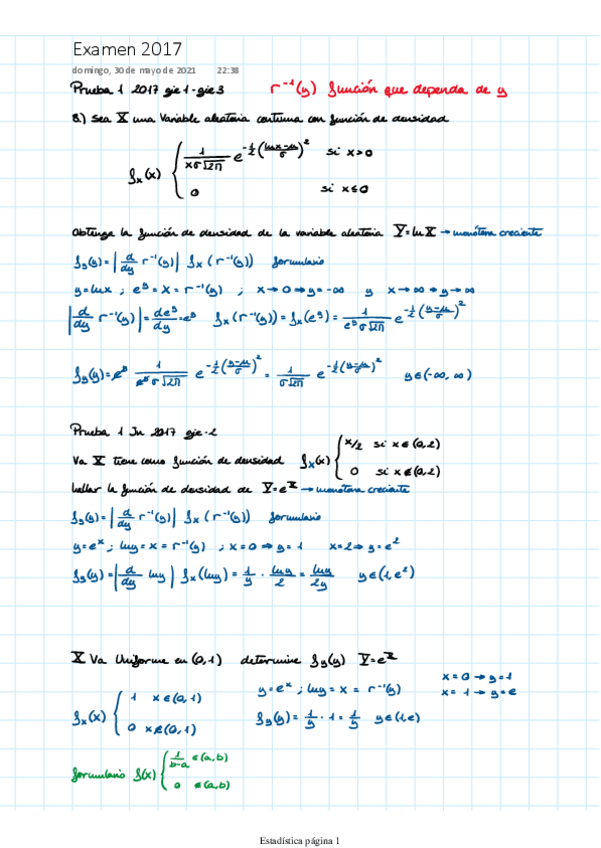 Examen 2017
domingo, 30 de mayo de 2021 22:38
Prueba 1 2017 gie1-gie3 r⁻¹(y) función que dependa de y
8.) Sea X una variable aleatoria continua con función de densidad
fx(x) { 1/(xσ√2π) e^(-1/2((lnx-μ)/σ)²) si x>0
0 si x≤0
Obtenga la función de densidad de la variable aleatoria Y=lnX → monótona creciente
fy(y)=|d/dy r⁻¹(y)| fx(r⁻¹(y)) formulario
y=lnx ; e^y = x = r⁻¹(y) ; x→0→y=-∞ y x→∞→y→∞
|d/dy r⁻¹(y)|=de^y/dy=e^y fx(r⁻¹(y))=fx(e^y)= 1/(e^y σ√2π) e^(-1/2((y-μ)/σ)²)
fy(y)=e^y 1/(e^y σ√2π) e^(-1/2((y-μ)/σ)²) = 1/(σ√2π) e^(-1/2((y-μ)/σ)²) y∈(-∞,∞)
Prueba 1 In 2017 gie-2
Va X tiene como función de densidad fx(x) { x/2 si x∈(0,2)
0 si x∉(0,2)
hallar la función de densidad de Y=e^X → monótona creciente
fy(y)=|d/dy r⁻¹(y)| fx(r⁻¹(y)) formulario
y=e^x ; lny=x=r⁻¹(y) ; x=0→y=1 x=2→y=e²
fy(y)=|d/dy lny| fx(lny)= 1/y · lny/2 = lny/2y y∈(1,e²)
X Va Uniforme en (0,1) determine fy(y) Y=e^X
x=0→y=1
x=1→y=e
y=e^x ; lny=x=r⁻¹(y)
fx(x) { 1 x∈(0,1)
0 x∉(0,1)
fy(y)= 1/y · 1 = 1/y y∈(1,e)
formulario f(x) { 1/(b-a) ∈(a,b)
0 ∉(a,b)
Estadística página 1